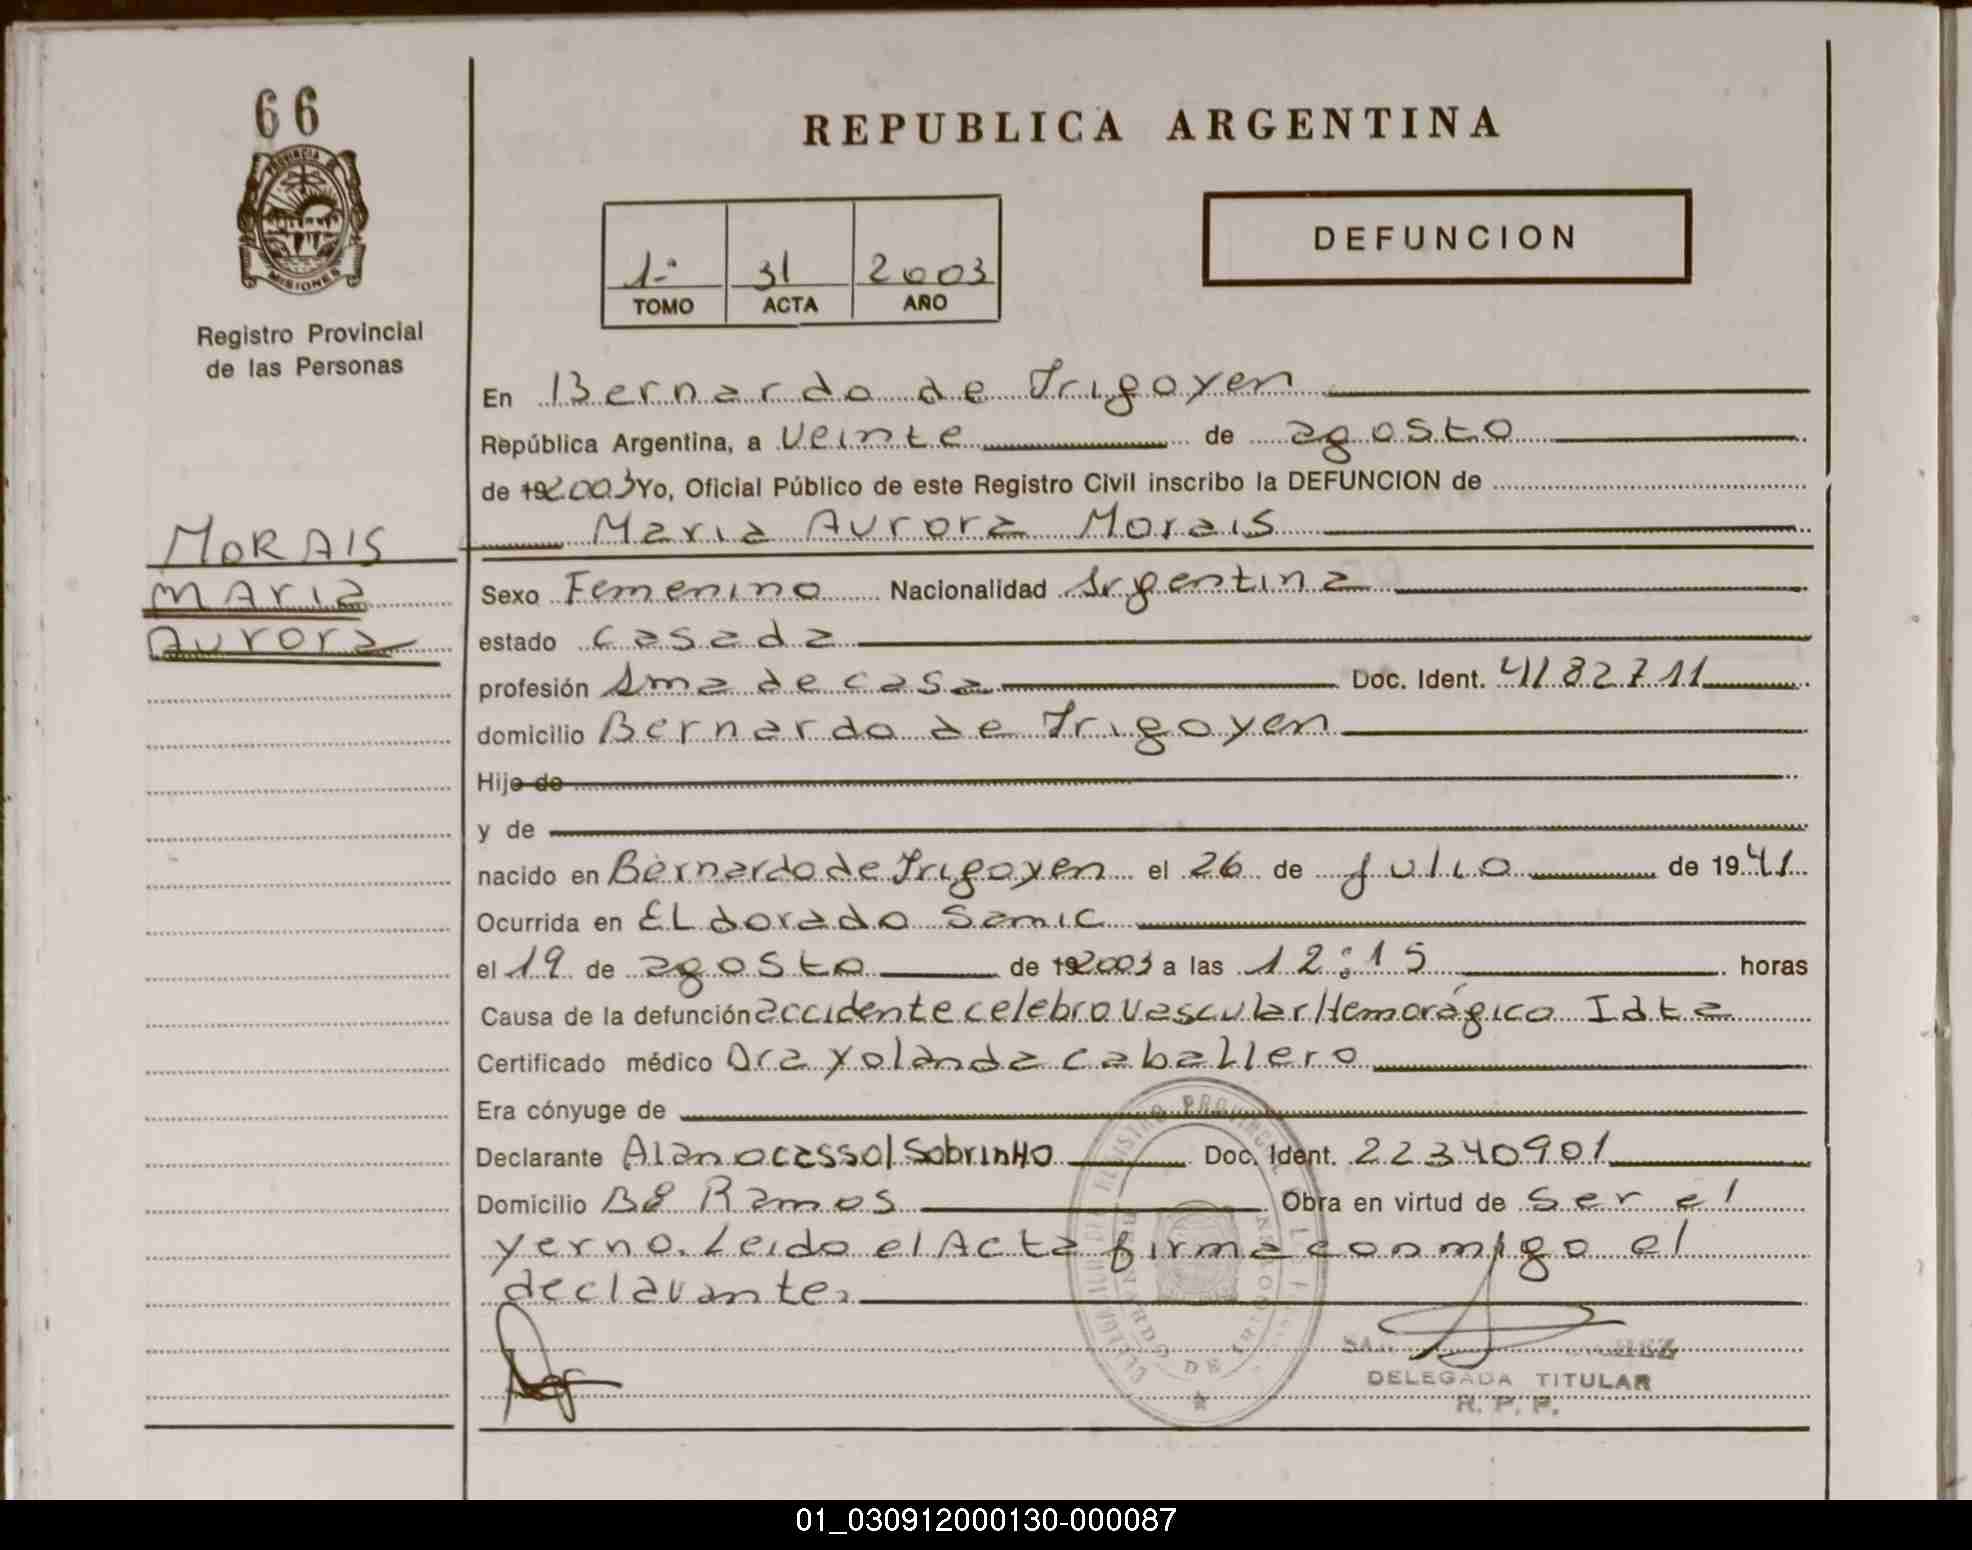 66
PROVINCIA DE
MISIONES
Registro Provincial
de las Personas
MORAIS
MARIA
AURORA
REPUBLICA ARGENTINA
1º 31 2003
TOMO ACTA AÑO
DEFUNCION
En Bernardo de Irigoyen
República Argentina, a Veinte de agosto
de 192003 Yo, Oficial Público de este Registro Civil inscribo la DEFUNCION de
Maria Aurora Morais
Sexo Femenino Nacionalidad Argentina
estado casada
profesión Ama de casa Doc. Ident. 4182711
domicilio Bernardo de Irigoyen
Hijo de
y de
nacido en Bernardo de Irigoyen el 26 de julio de 1941
Ocurrida en ELdorado Samic
el 19 de agosto de 192003 a las 12:15 horas
Causa de la defunción accidente celebro vascular Hemorágico Idta
Certificado médico Dra Yolanda caballero
Era cónyuge de
Declarante Alan ocassol SobrinHo Doc. Ident. 22340901
Domicilio Bº Ramos Obra en virtud de ser el
yerno. Leido el Acta firma conmigo el
declarante.
DELEGADA TITULAR
R. P. P.
01_030912000130-000087